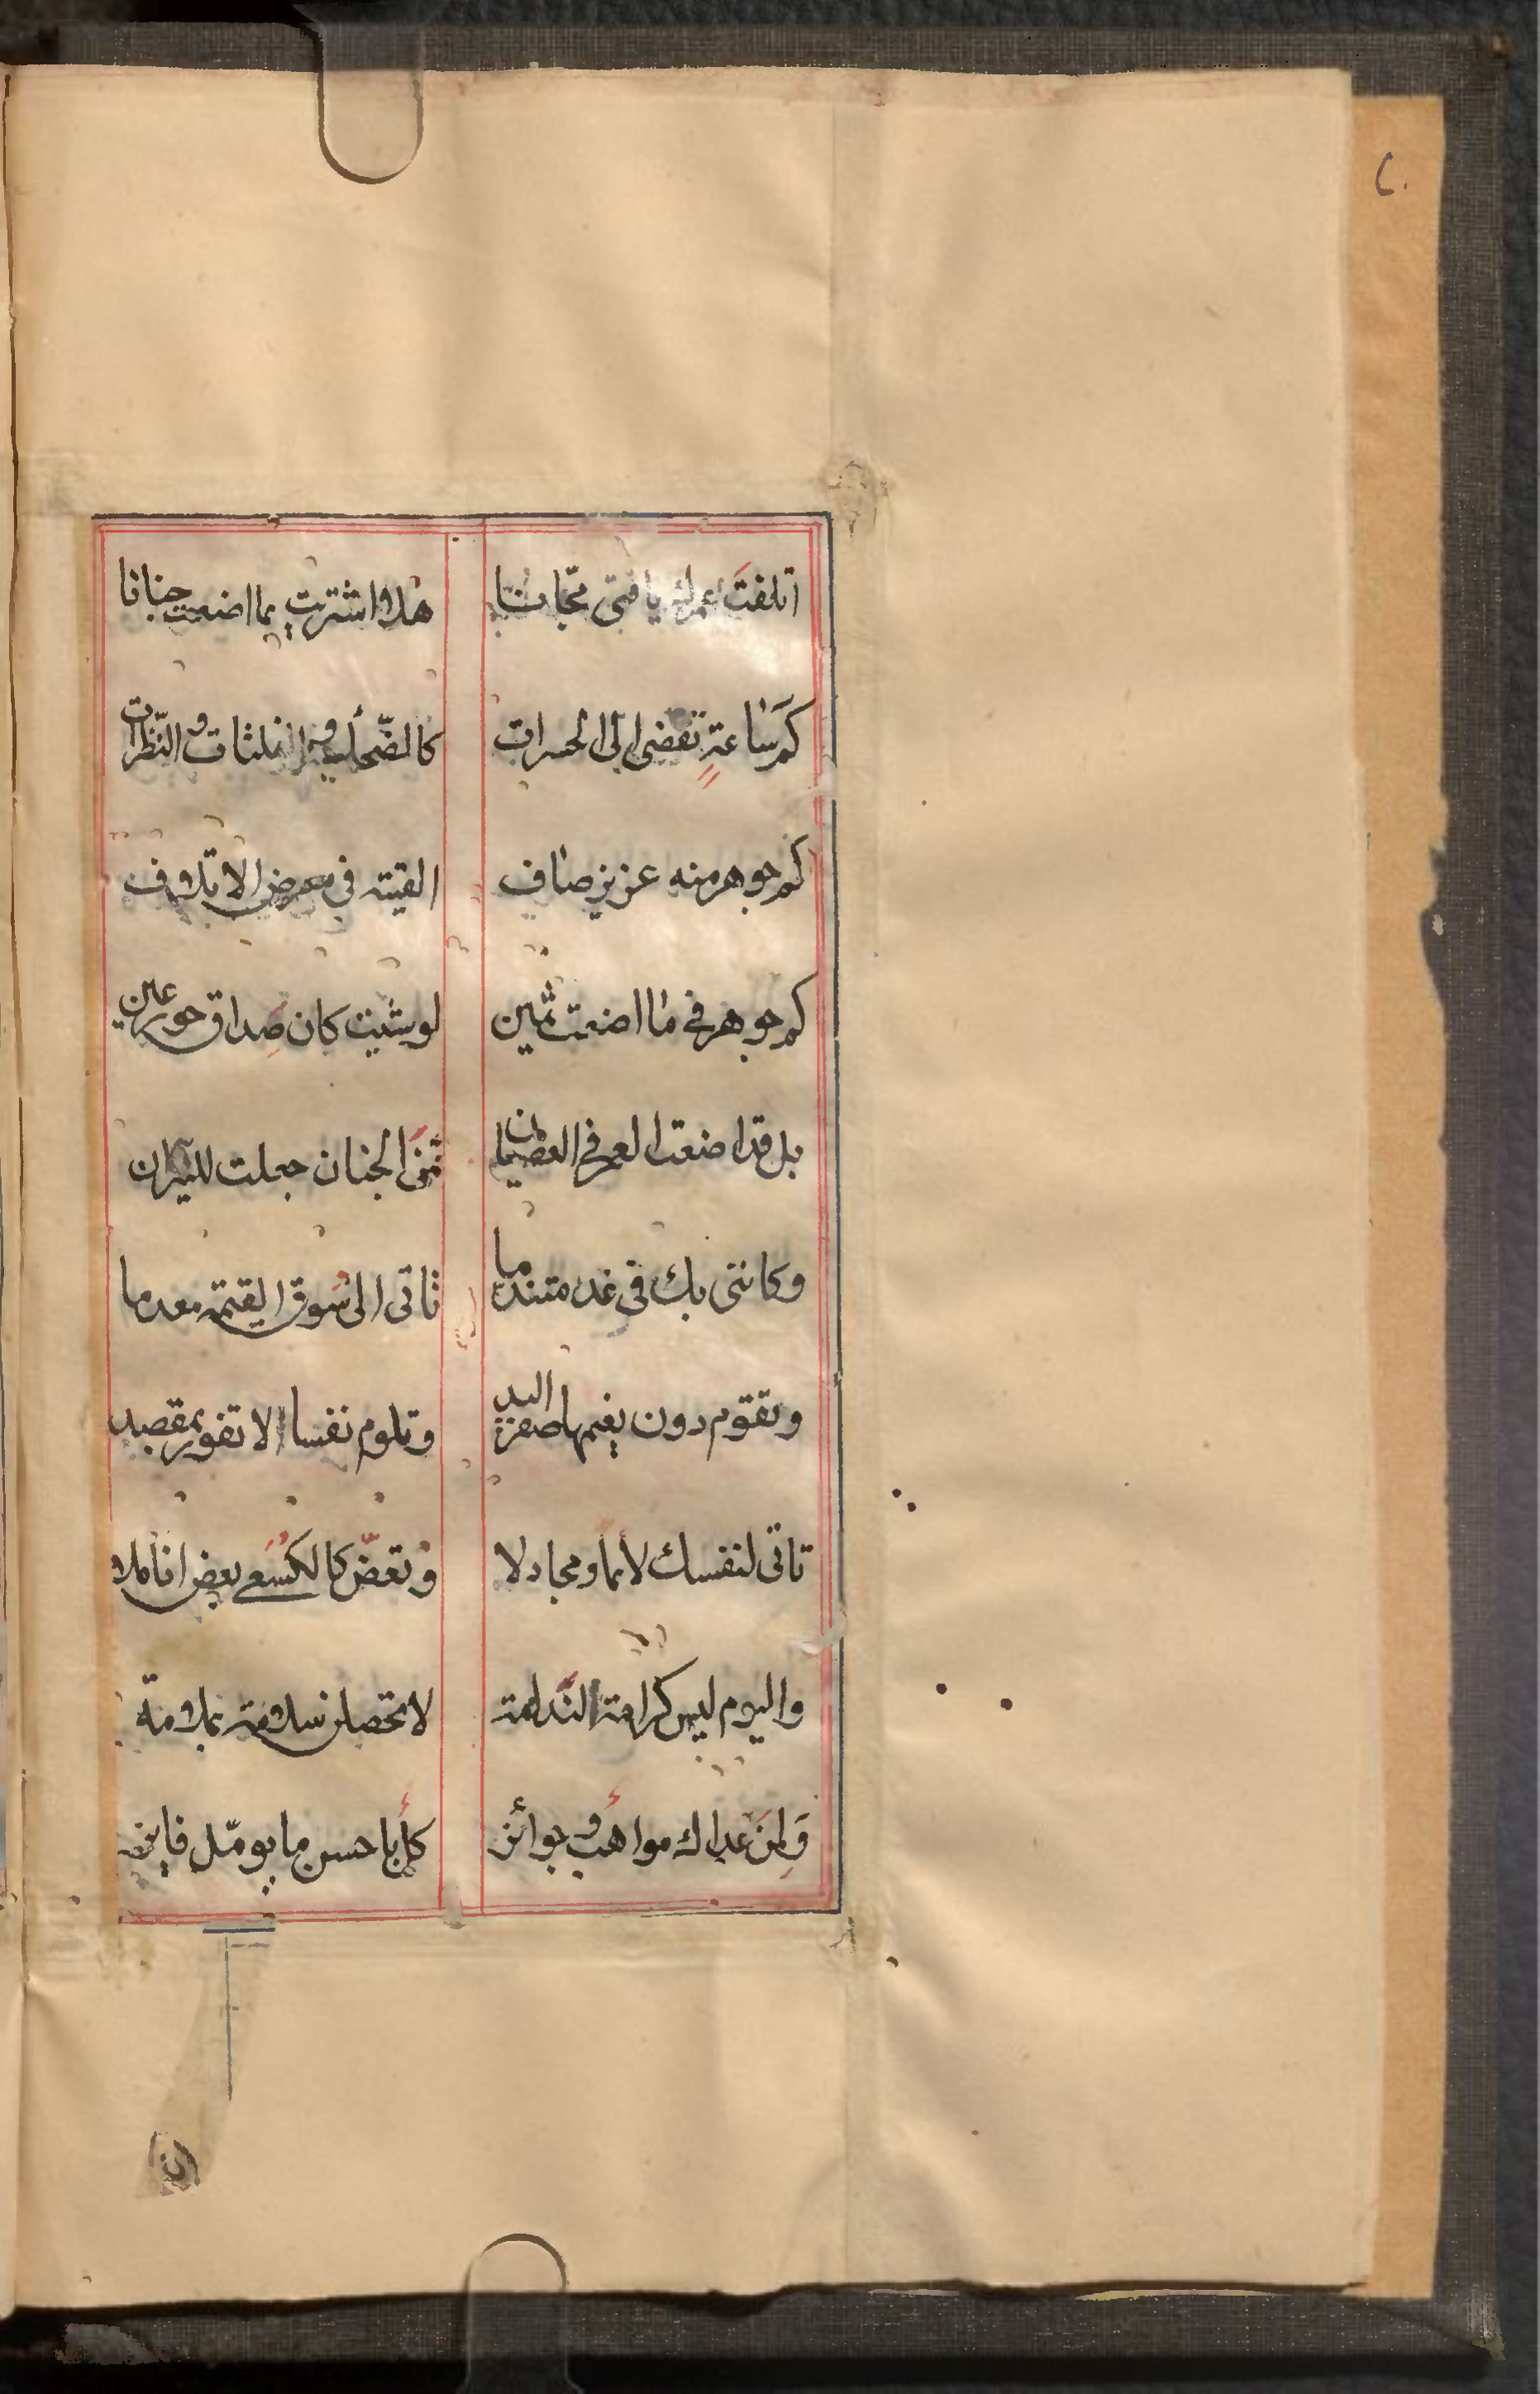 اتلفتَ عمرك يا فتى مجّانا هلا اشتريت بما اضعت جنانا
كم ساعةٍ تفضى الى الحسرات كالضّحك والفلتات والنّظرات
كم جوهر منه عزيز صاف القيته فى معرض الاتلاف
كم جوهر فى ما اضعت ثمين لو شئت كان صِداق حور عين
بل قد اضعت العمر فى العصيان ثمنَ الجنان جعلت للنيران
وكاننى بك فى غد متندما تاتى الى سُوق القيمة معدما
وتقوم دون نعيمها صفر اليد وتلوم نفسا لا تفوز بمقصد
تاتى لنفسك لائما ومجادلا وتعضّ كالكُسَعى بعض اناملا
واليوم ليس كرامة الندامة لا تحصلن سلامة بملامة
وَلِمَن عداك مواهب وجوائز كل با حسن ما يومّل فايز